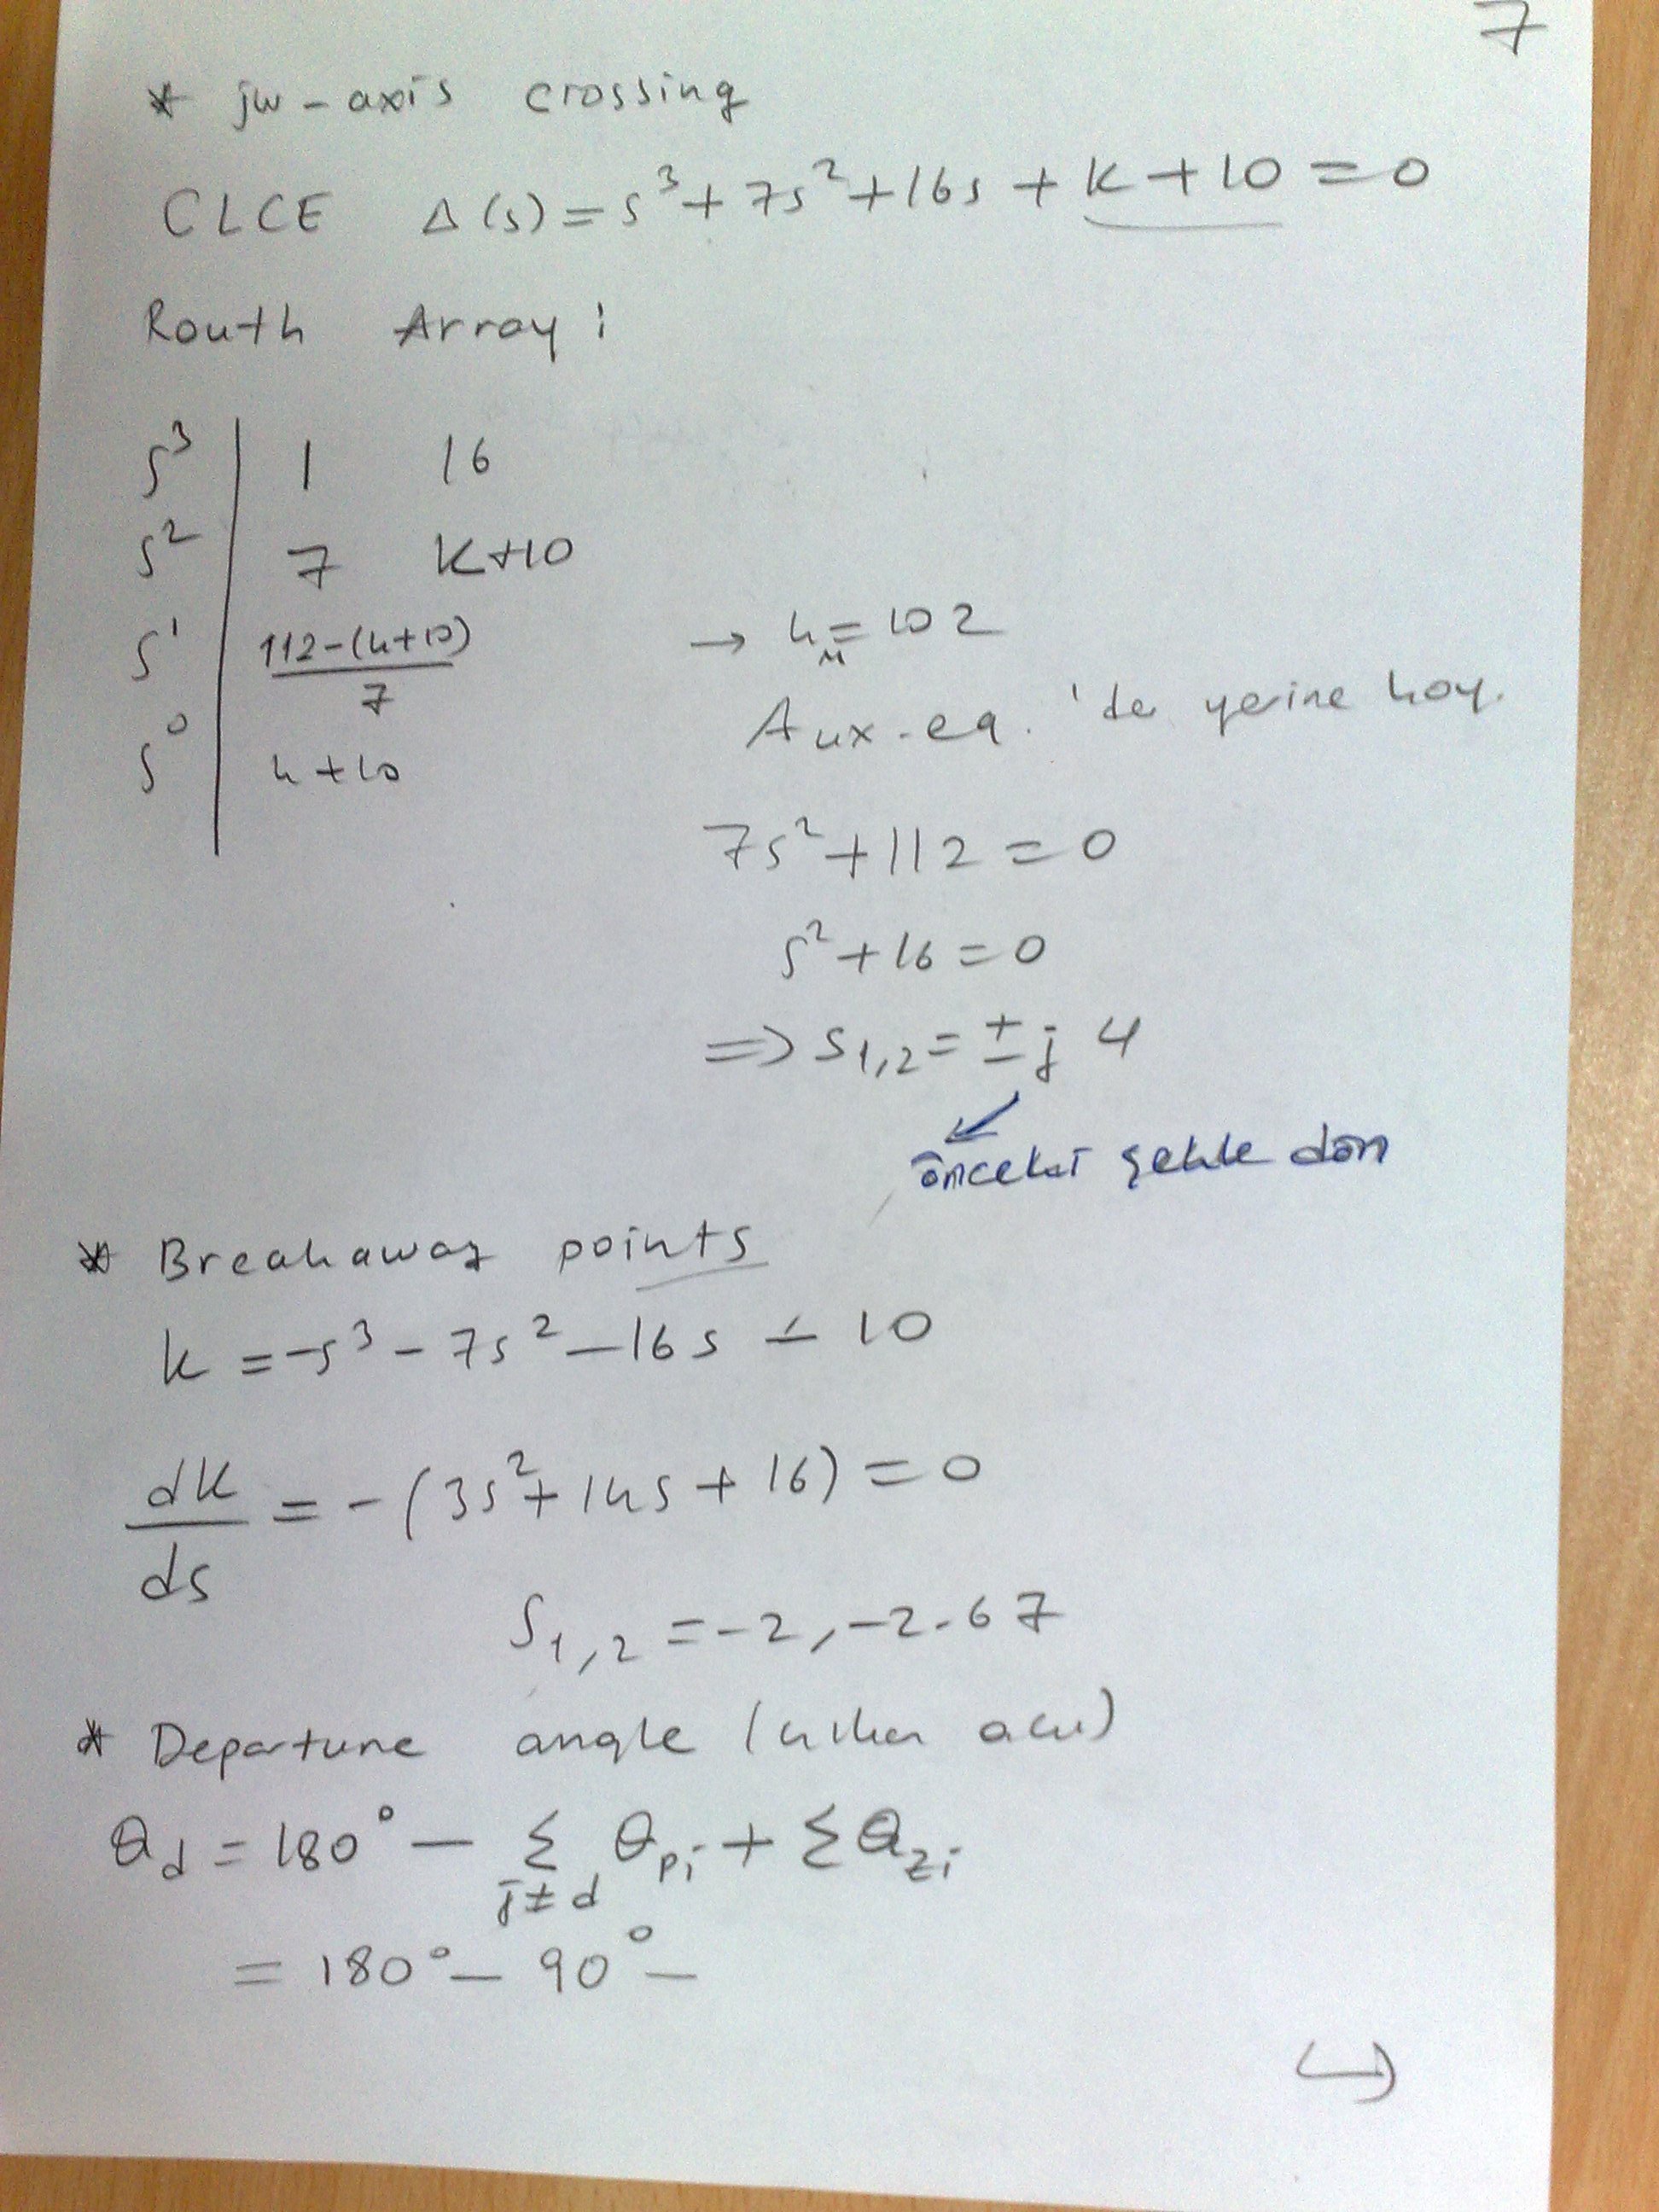 7
* jw-axis crossing
CLCE Δ(s) = s³ + 7s² + 16s + k + 10 = 0
Routh Array:
s³ | 1 16
s² | 7 k+10
s¹ | (112-(k+10))/7 → k = 102
Aux. eq. 'de yerine koy.
s⁰ | k+10
7s² + 112 = 0
s² + 16 = 0
=> s1,2 = ± j 4
önceki şekle dön
* Breakaway points
k = -s³ - 7s² - 16s - 10
dk/ds = -(3s² + 14s + 16) = 0
s1,2 = -2, -2.67
* Departure angle (çıkış açısı)
θd = 180° - Σ j≠d θpi + Σ θzi
= 180° - 90° -